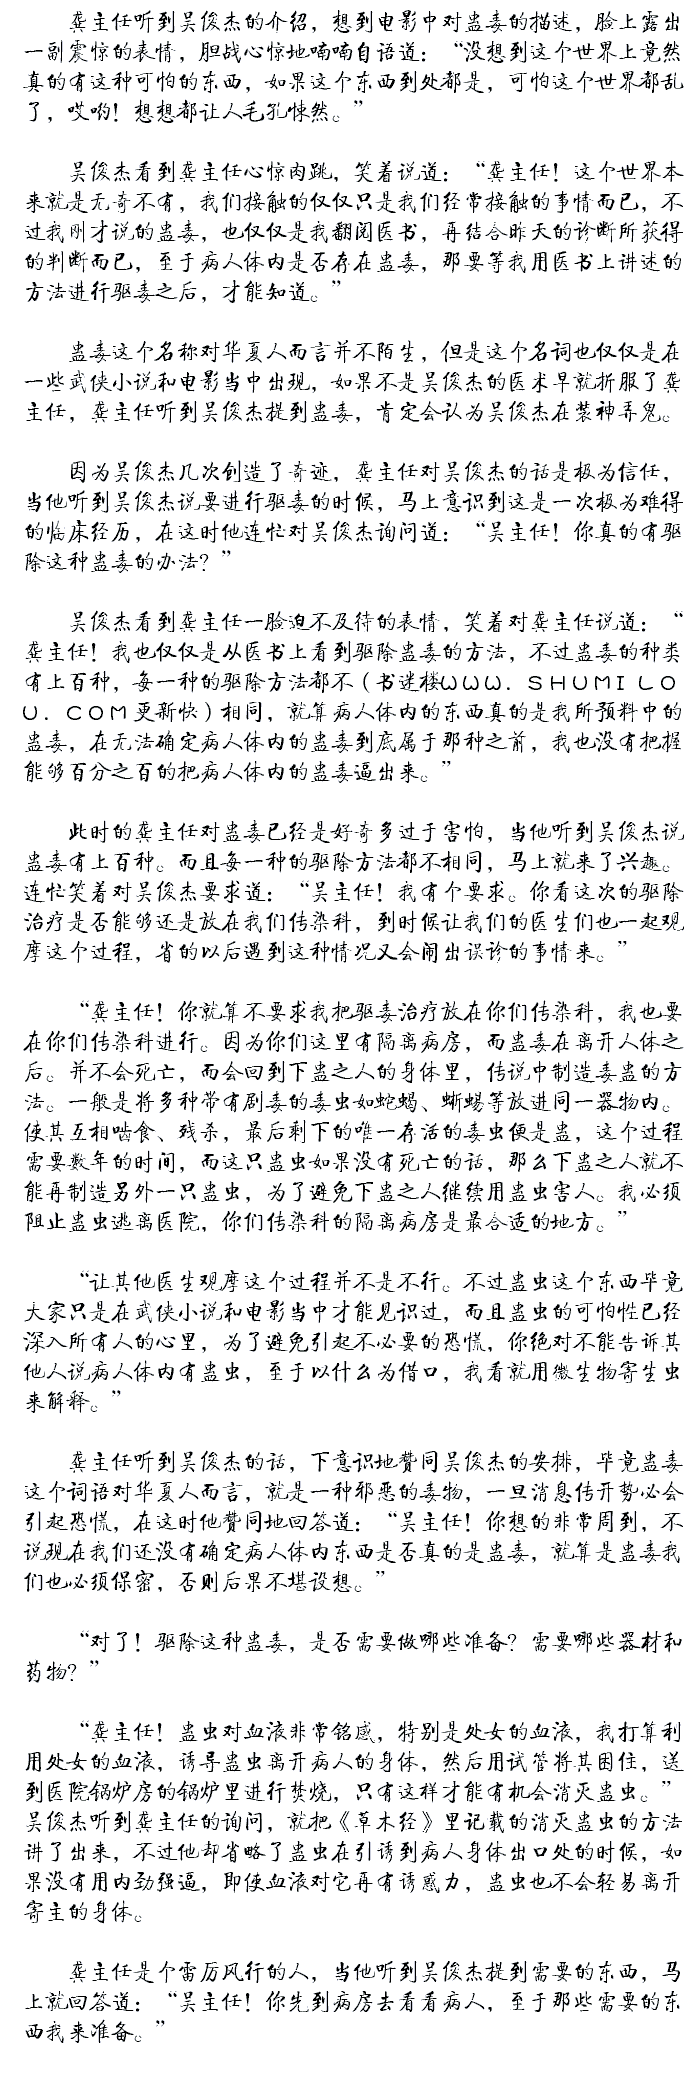 龚主任听到吴俊杰的介绍，想到电影中对蛊毒的描述，脸上露出
一副震惊的表情，胆战心惊地喃喃自语道：“没想到这个世界上竟然
真的有这种可怕的东西，如果这个东西到处都是，可怕这个世界都乱
了，哎哟！想想都让人毛孔悚然。”
吴俊杰看到龚主任心惊肉跳，笑着说道：“龚主任！这个世界本
来就是无奇不有，我们接触的仅仅只是我们经常接触的事情而已，不
过我刚才说的蛊毒，也仅仅是我翻阅医书，再结合昨天的诊断所获得
的判断而已，至于病人体内是否存在蛊毒，那要等我用医书上讲述的
方法进行驱毒之后，才能知道。”
蛊毒这个名称对华夏人而言并不陌生，但是这个名词也仅仅是在
一些武侠小说和电影当中出现，如果不是吴俊杰的医术早就折服了龚
主任，龚主任听到吴俊杰提到蛊毒，肯定会认为吴俊杰在装神弄鬼。
因为吴俊杰几次创造了奇迹，龚主任对吴俊杰的话是极为信任，
当他听到吴俊杰说要进行驱毒的时候，马上意识到这是一次极为难得
的临床经历，在这时他连忙对吴俊杰询问道：“吴主任！你真的有驱
除这种蛊毒的办法？”
吴俊杰看到龚主任一脸迫不及待的表情，笑着对龚主任说道：“
龚主任！我也仅仅是从医书上看到驱除蛊毒的方法，不过蛊毒的种类
有上百种，每一种的驱除方法都不（书迷楼ＷＷＷ．ＳＨＵＭＩＬＯ
Ｕ．ＣＯＭ更新快）相同，就算病人体内的东西真的是我所预料中的
蛊毒，在无法确定病人体内的蛊毒到底属于那种之前，我也没有把握
能够百分之百的把病人体内的蛊毒逼出来。”
此时的龚主任对蛊毒已经是好奇多过于害怕，当他听到吴俊杰说
蛊毒有上百种。而且每一种的驱除方法都不相同，马上就来了兴趣。
连忙笑着对吴俊杰要求道：“吴主任！我有个要求。你看这次的驱除
治疗是否能够还是放在我们传染科，到时候让我们的医生们也一起观
摩这个过程，省的以后遇到这种情况又会闹出误诊的事情来。”
“龚主任！你就算不要求我把驱毒治疗放在你们传染科，我也要
在你们传染科进行。因为你们这里有隔离病房，而蛊毒在离开人体之
后。并不会死亡，而会回到下蛊之人的身体里，传说中制造毒蛊的方
法。一般是将多种带有剧毒的毒虫如蛇蝎、蜥蜴等放进同一器物内。
使其互相啮食、残杀，最后剩下的唯一存活的毒虫便是蛊，这个过程
需要数年的时间，而这只蛊虫如果没有死亡的话，那么下蛊之人就不
能再制造另外一只蛊虫，为了避免下蛊之人继续用蛊虫害人。我必须
阻止蛊虫逃离医院，你们传染科的隔离病房是最合适的地方。”
“让其他医生观摩这个过程并不是不行。不过蛊虫这个东西毕竟
大家只是在武侠小说和电影当中才能见识过，而且蛊虫的可怕性已经
深入所有人的心里，为了避免引起不必要的恐慌，你绝对不能告诉其
他人说病人体内有蛊虫，至于以什么为借口，我看就用微生物寄生虫
来解释。”
龚主任听到吴俊杰的话，下意识地赞同吴俊杰的安排，毕竟蛊毒
这个词语对华夏人而言，就是一种邪恶的毒物，一旦消息传开势必会
引起恐慌，在这时他赞同地回答道：“吴主任！你想的非常周到，不
说现在我们还没有确定病人体内东西是否真的是蛊毒，就算是蛊毒我
们也必须保密，否则后果不堪设想。”
“对了！驱除这种蛊毒，是否需要做哪些准备？需要哪些器材和
药物？”
“龚主任！蛊虫对血液非常铭感，特别是处女的血液，我打算利
用处女的血液，诱导蛊虫离开病人的身体，然后用试管将其困住，送
到医院锅炉房的锅炉里进行焚烧，只有这样才能有机会消灭蛊虫。”
吴俊杰听到龚主任的询问，就把《草木经》里记载的消灭蛊虫的方法
讲了出来，不过他却省略了蛊虫在引诱到病人身体出口处的时候，如
果没有用内劲强逼，即使血液对它再有诱惑力，蛊虫也不会轻易离开
寄主的身体。
龚主任是个雷厉风行的人，当他听到吴俊杰提到需要的东西，马
上就回答道：“吴主任！你先到病房去看看病人，至于那些需要的东
西我来准备。”